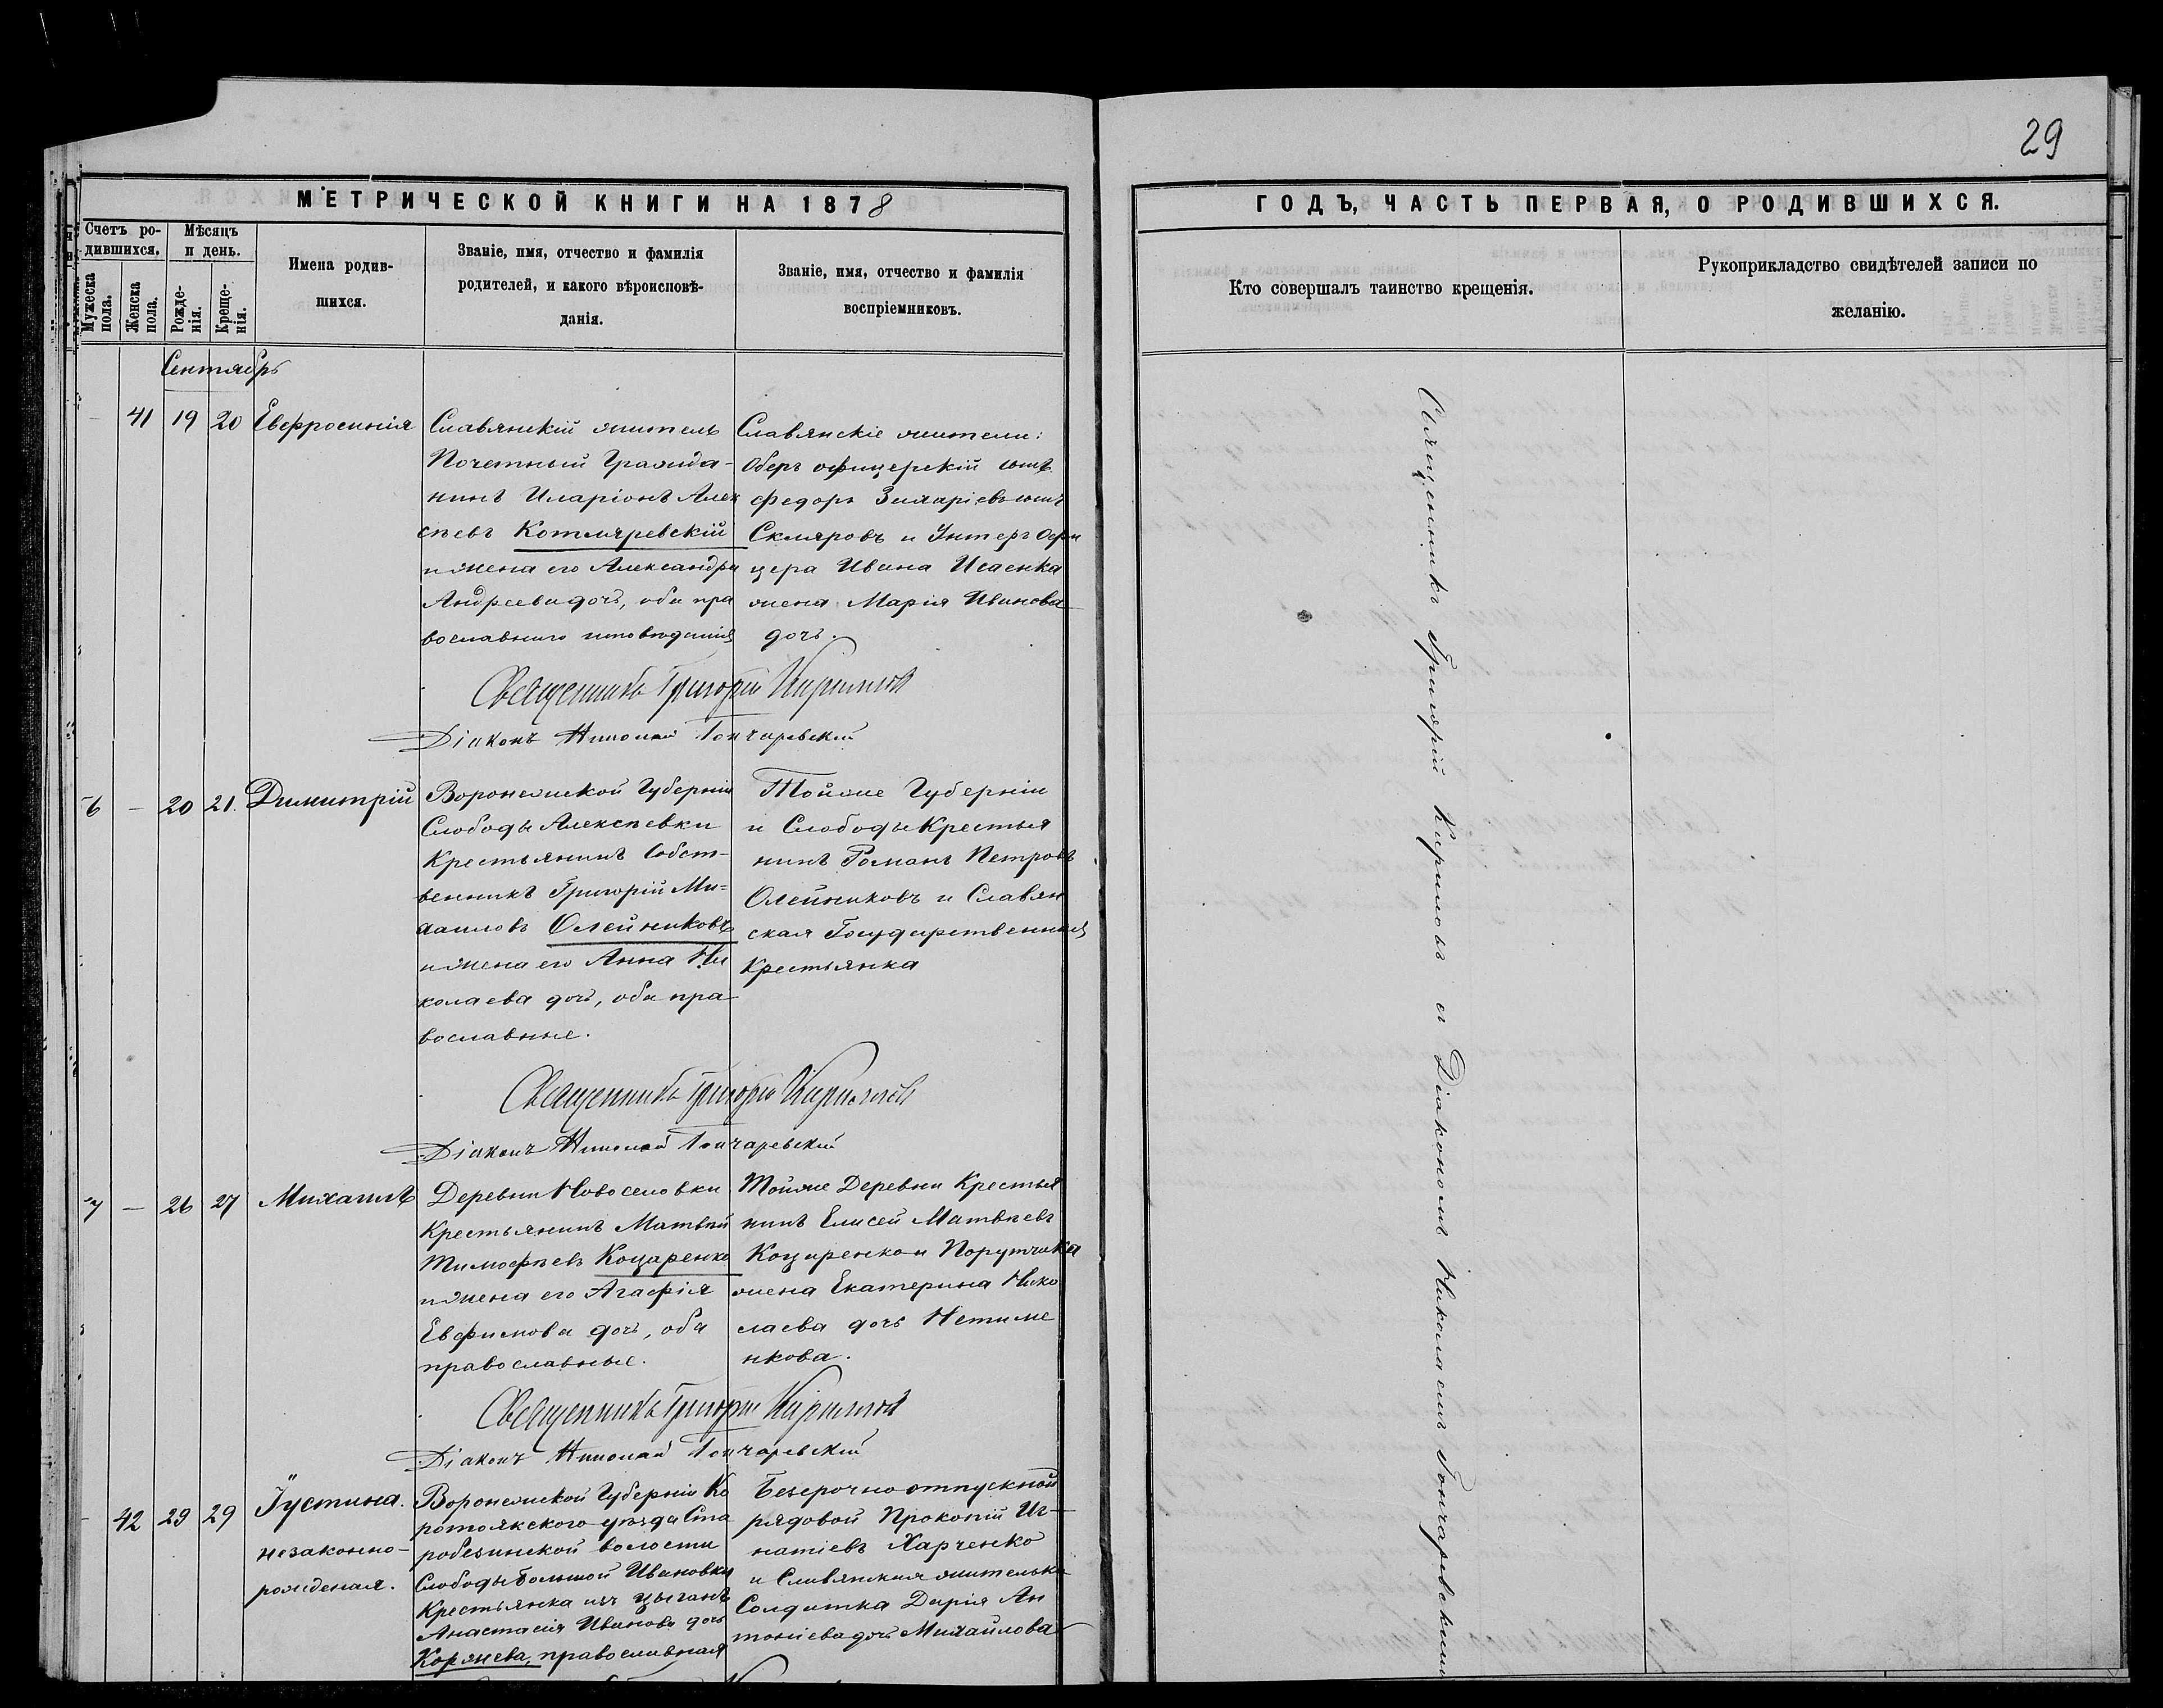 29
МЕТРИЧЕСКОЙ КНИГИ НА 1878
ГОДЪ, ЧАСТЬ ПЕРВАЯ, О РОДИВШИХСЯ.
Счетъ ро-
дившихся.
Мужеска
пола.
Женска
пола.
Мѣсяцъ
и день.
Рожде-
нія.
Креще-
нія.
Имена родив-
шихся.
Званіе, имя, отчество и фамилія
родителей, и какого вѣроисповѣ-
данія.
Званіе, имя, отчество и фамилія
воспріемниковъ.
Кто совершалъ таинство крещенія.
Рукоприкладство свидѣтелей записи по
желанію.
Сентябрь
41 19 20 Евфросинія
Славянскій житель
Почетный Гражда-
нинъ Иларіонъ Алек
сѣевъ Котляревскій
и жена его Александра
Андреева дочь, оба пра
вославнаго исповѣданія
Славянскіе жители:
Оберъ офицерскій сынъ
Федоръ сынъ
Скляровъ и Унтеръ Офи
цера Ивана Исаенка
жена Марія Иванова
дочь.
Священникъ Григорій Кириловъ
Діаконъ Николай Гончаревскій
6 — 20 21. Димитрій
Воронежской Губерніи
Слободы Алексѣевки
Крестьянинъ Собст-
венникъ Григорій Ми=
хаиловъ Олейниковъ
и жена его Анна Ни
колаева дочь, оба пра
вославные.
Тойже Губерніи
и Слободы Крестья
нинъ Романъ Петровъ
Олейниковъ и Славян
ская Государственная
Крестьянка
Священникъ Григорій Кириловъ
Діаконъ Николай Гончаревскій
7 — 26 27 Михаилъ
Деревни Новоселовки
Крестьянинъ Матвѣй
Тимофѣевъ Коцаренко
и жена его Агафія
Евфимова дочь, оба
православные.
Тойже Деревни Крестья
нинъ Елисей Матвѣевъ
Коцаренко и Порутчика
жена Екатерина Нико
лаева дочь Нетиме
нкова.
Священникъ Григорій Кириловъ
Діаконъ Николай Гончаревскій
42 29 29 Іустина.
незаконно-
рожденая.
Воронежской Губерніи Ко
ротоякского уѣзда Ста
робезинской волости
Слободы Большой Ивановки
Крестьянка изъ цыганъ
Анастасія Иванова дочь
Коржева, православная
Безсрочно отпускной
рядовой Прокопій Иг-
натіевъ Харченко
и Славянская жителька
Солдатка Дарія Ан
тоніева дочь Михайлова
Священникъ Григорій Кириловъ съ Діакономъ Николаемъ Гончаревскимъ